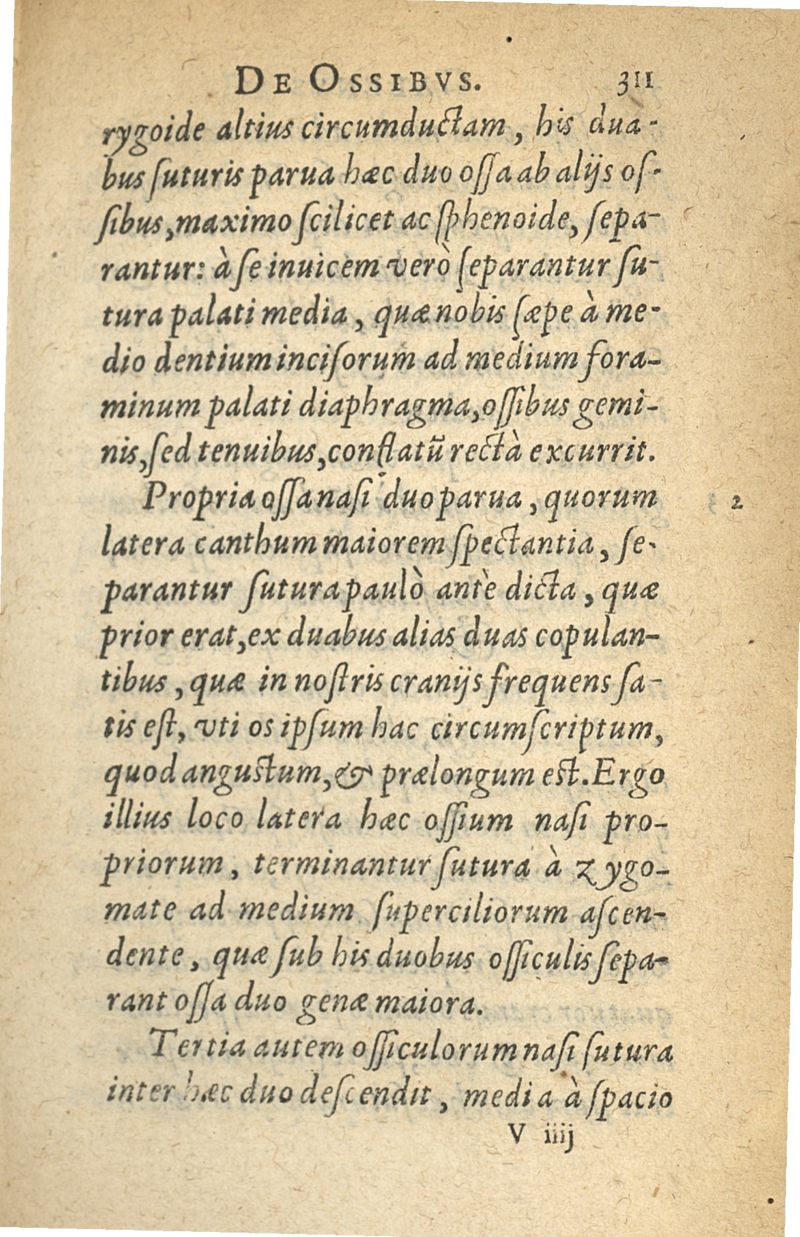 DE OSSIBVS. 311
rygoide altius circumductam, his dua-
bus ſuturis parua hæc duo oſſa ab alijs oſ-
ſibus, maximo ſcilicet ac ſphenoide, ſepa-
rantur: à ſe inuicem verò ſeparantur ſu-
tura palati media, quæ nobis ſæpe à me-
dio dentium inciſorum ad medium fora-
minum palati diaphragma, oſſibus gemi-
nis, ſed tenuibus, conflatū rectà excurrit.
Propria oſſa naſi duo parua, quorum 2
latera canthum maiorem ſpectantia, ſe-
parantur ſutura paulò antè dicta, quæ
prior erat, ex duabus alias duas copulan-
tibus, quæ in noſtris cranijs frequens ſa-
tis eſt, vti os ipſum hac circumſcriptum,
quod anguſtum, & prælongum eſt. Ergo
illius loco latera hæc oſſium naſi pro-
priorum, terminantur ſutura à zygo-
mate ad medium ſuperciliorum aſcen-
dente, quæ ſub his duobus oſſiculis ſepa-
rant oſſa duo genæ maiora.
Tertia autem oſſiculorum naſi ſutura
inter hæc duo deſcendit, media à ſpacio
V iiij